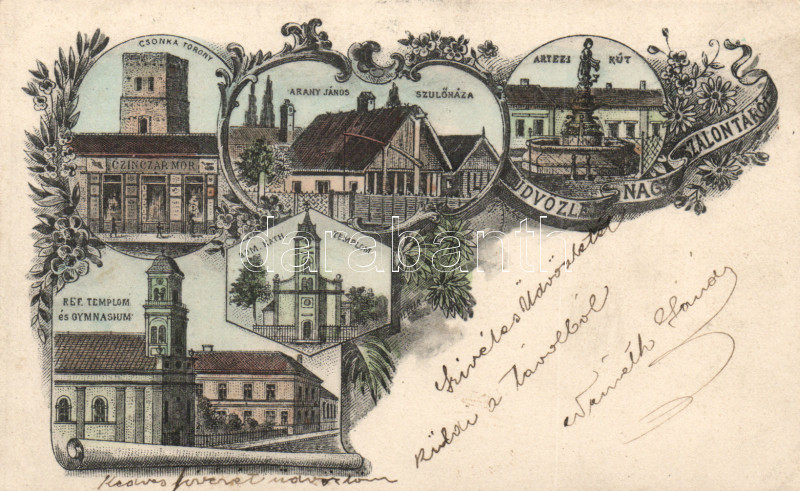 CSONKA TORONY
CZINCZÁR MÓR
ARANY JÁNOS SZÜLŐHÁZA
ARTEZI KÚT
ÜDVÖZLET NAGY SZALONTÁRÓL
RÓM. KATH. TEMPLOM
REF. TEMPLOM
ÉS GYMNASIUM
darabanth
Szivélyes Üdvözletét
küldi a távolból
Németh
üdvözlöm